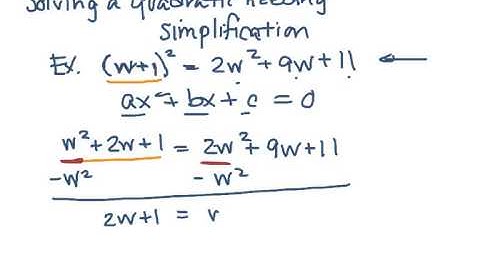 Solving a Quadratic Needing
Simplification
Ex. (w+1)² = 2w² + 9w + 11
ax² + bx + c = 0
w² + 2w + 1 = 2w² + 9w + 11
-w² - w²
2w+1 =